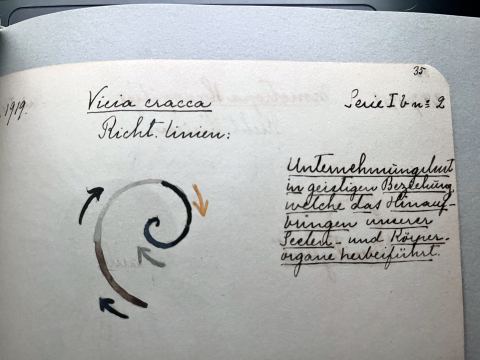 35
1919.
Vicia cracca
Serie I b n: 2
Richt. linien:
Unternehmungslust
in geistigen Beziehung,
welche das Hinauf-
bringen unserer
Seelen- und Körper-
organe herbeiführt.